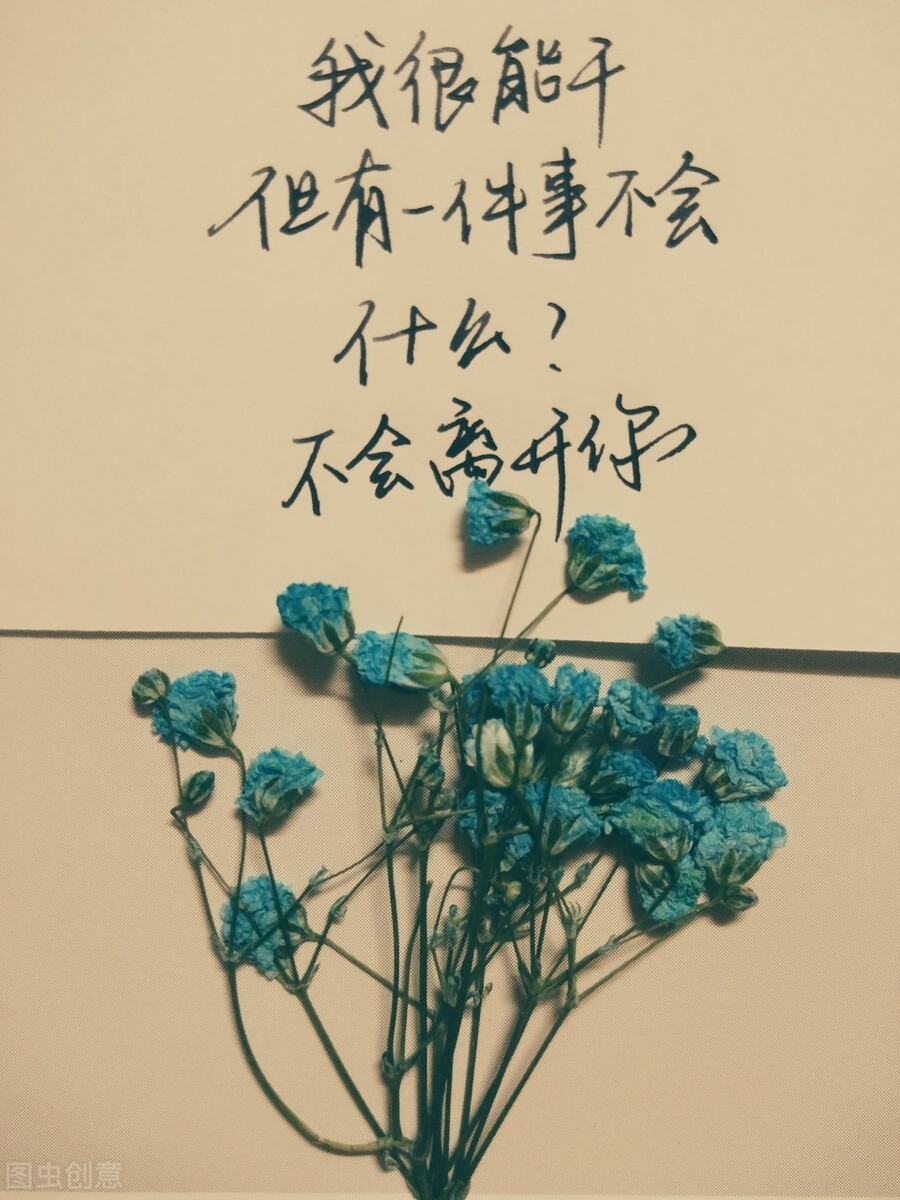 我很能干
但有一件事不会
什么?
不会离开你
图虫创意